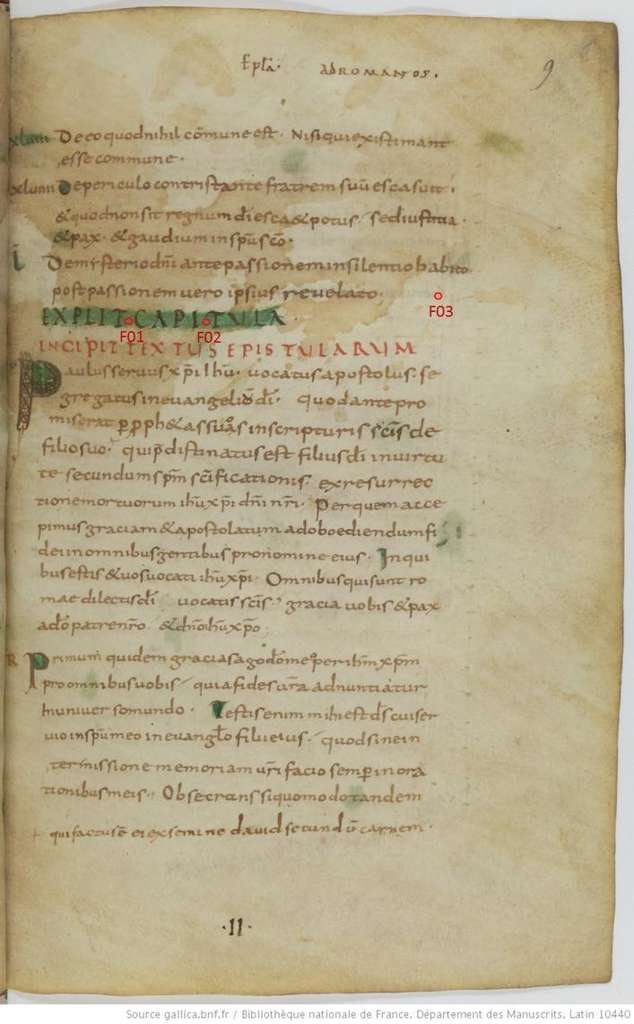 Epła· AD ROMANOS·
9
xlviii De eo quod nihil cōmune est· Nisi qui existimant
esse commune·
xlviiii De periculo contristante fratrem suū escasuū·
& quod non sit regnum dī esca & potus· sed iustitia·
& pax· & gaudium in spū scō·
l De mysterio dn̄i ante passionem in silentio habito
post passionem uero ipsius reuelato·
F03
EXPLIT CAPITULA
F01 F02
INCIPIT TEXTUS EPISTULARUM
Paulus seruus xp̄i ihū· uocatus apostolus· se
gregatus in euangeliū dī· quod ante pro
miserat scripturis scīs de
filio suo· qui p̄distinatus est filius dī in uirtu
te secundum spm̄ scīficationis ex resurrec
tione mortuorum ihū xp̄i dn̄i nr̄i· Per quem acce
pimus graciam & apostolatum ad oboediendum fi
dei in omnibus gentibus pro nomine eius· In qui
bus estis & uos uocati ihū xp̄i· Omnibus qui sunt ro
mae dilectis dī uocatis scīs· gracia uobis & pax
a dō patre nr̄o· & dn̄o ihū xp̄o·
R Primum quidem gracias ago dō meo per ihm̄ xp̄m
pro omnibus uobis· quia fides ur̄a adnuntiatur
in uniuerso mundo· Testis enim mihi est ds̄ cui ser
uio in spū meo in euanglō filii eius· quod sine in
termissione memoriam ur̄i facio semper in ora
tionibus meis· Obsecrans si quo modo tandem
+ qui factus ē ei ex semine dauid secundū carnem·
·II·
Source gallica.bnf.fr / Bibliothèque nationale de France. Département des Manuscrits. Latin 10440